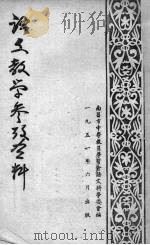 语文教学参考资料
南昌市中学教员学习会语文科学委会编
一九五一年六月出版